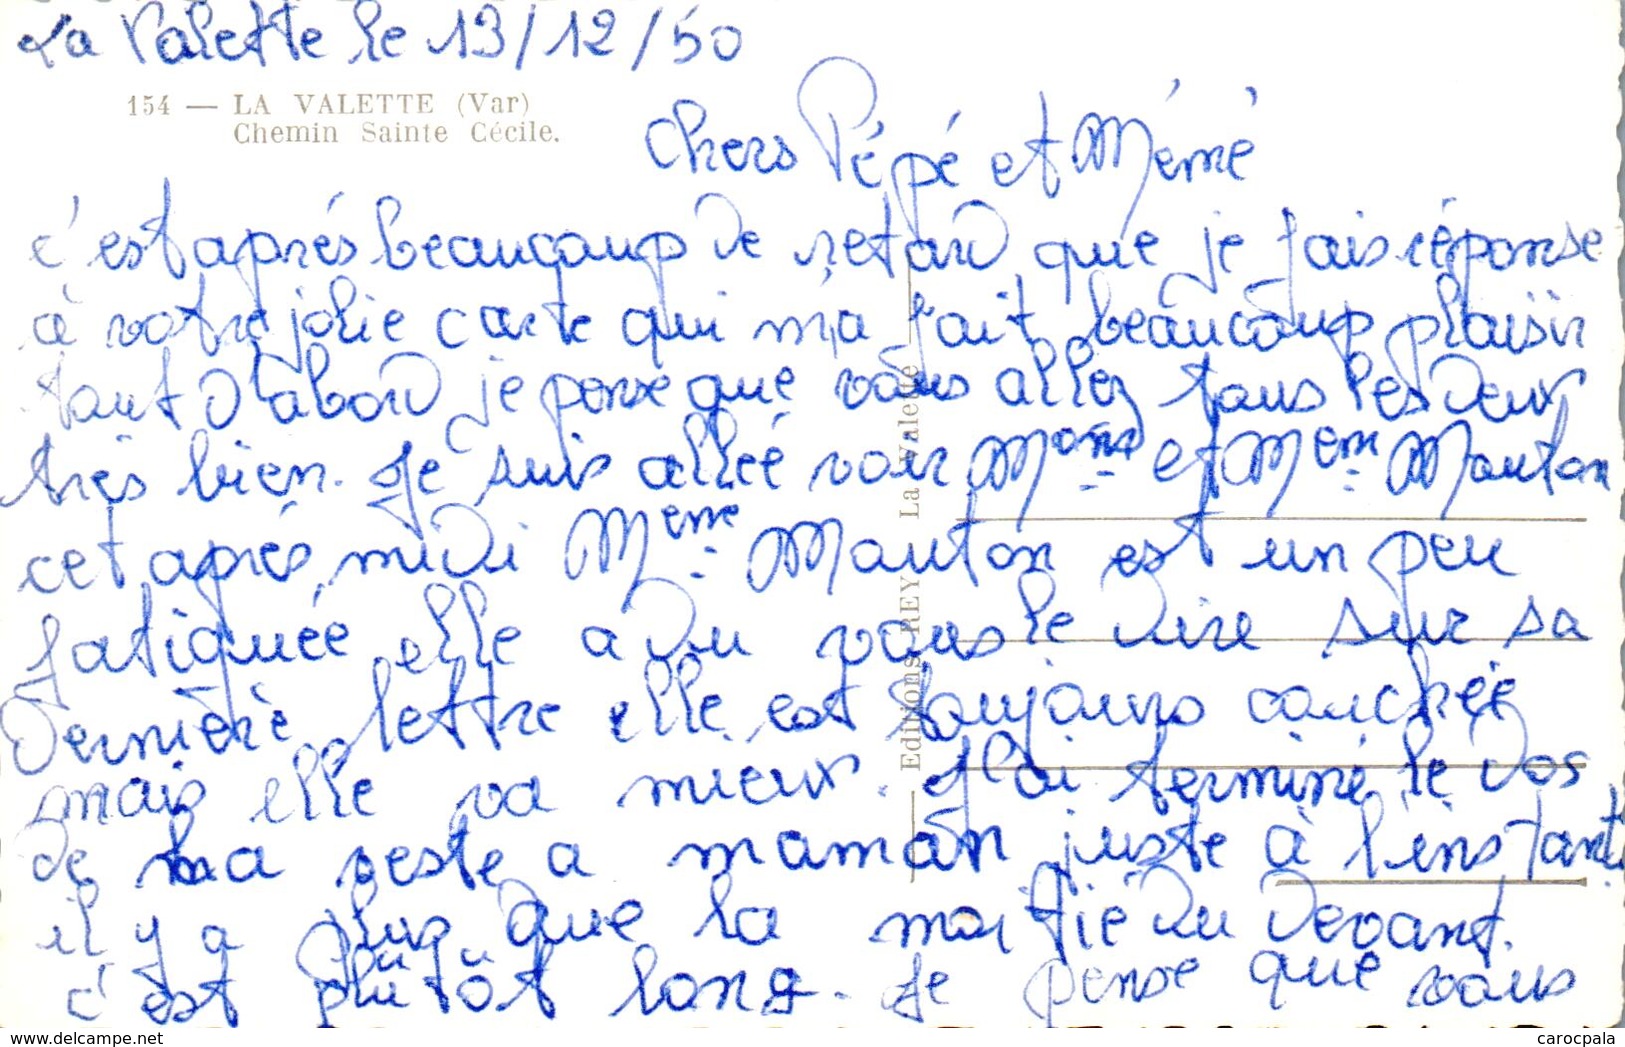 La Valette le 13/12/50
154 — LA VALETTE (Var)
Chemin Sainte Cécile.
Chers Pépé et Mémé
c'est aprés beaucoup de retard que je fais réponse
à votre jolie carte qui m'a fait beaucoup plaisir
tout d'abord je pense que vous allez tous les deux
très bien. Je suis allée voir et Mme Mouton
cet aprés midi Mme Mouton est un peu
fatiguée elle a du vous le dire sur sa
dernière lettre elle est toujours couchée
mais elle va mieux. J'ai terminé le dos
de la veste a maman juste à l'instant
il y a plus que la moitié du devant.
c'est plutôt long. Je pense que vous
Editions REY La Valette
carocpala